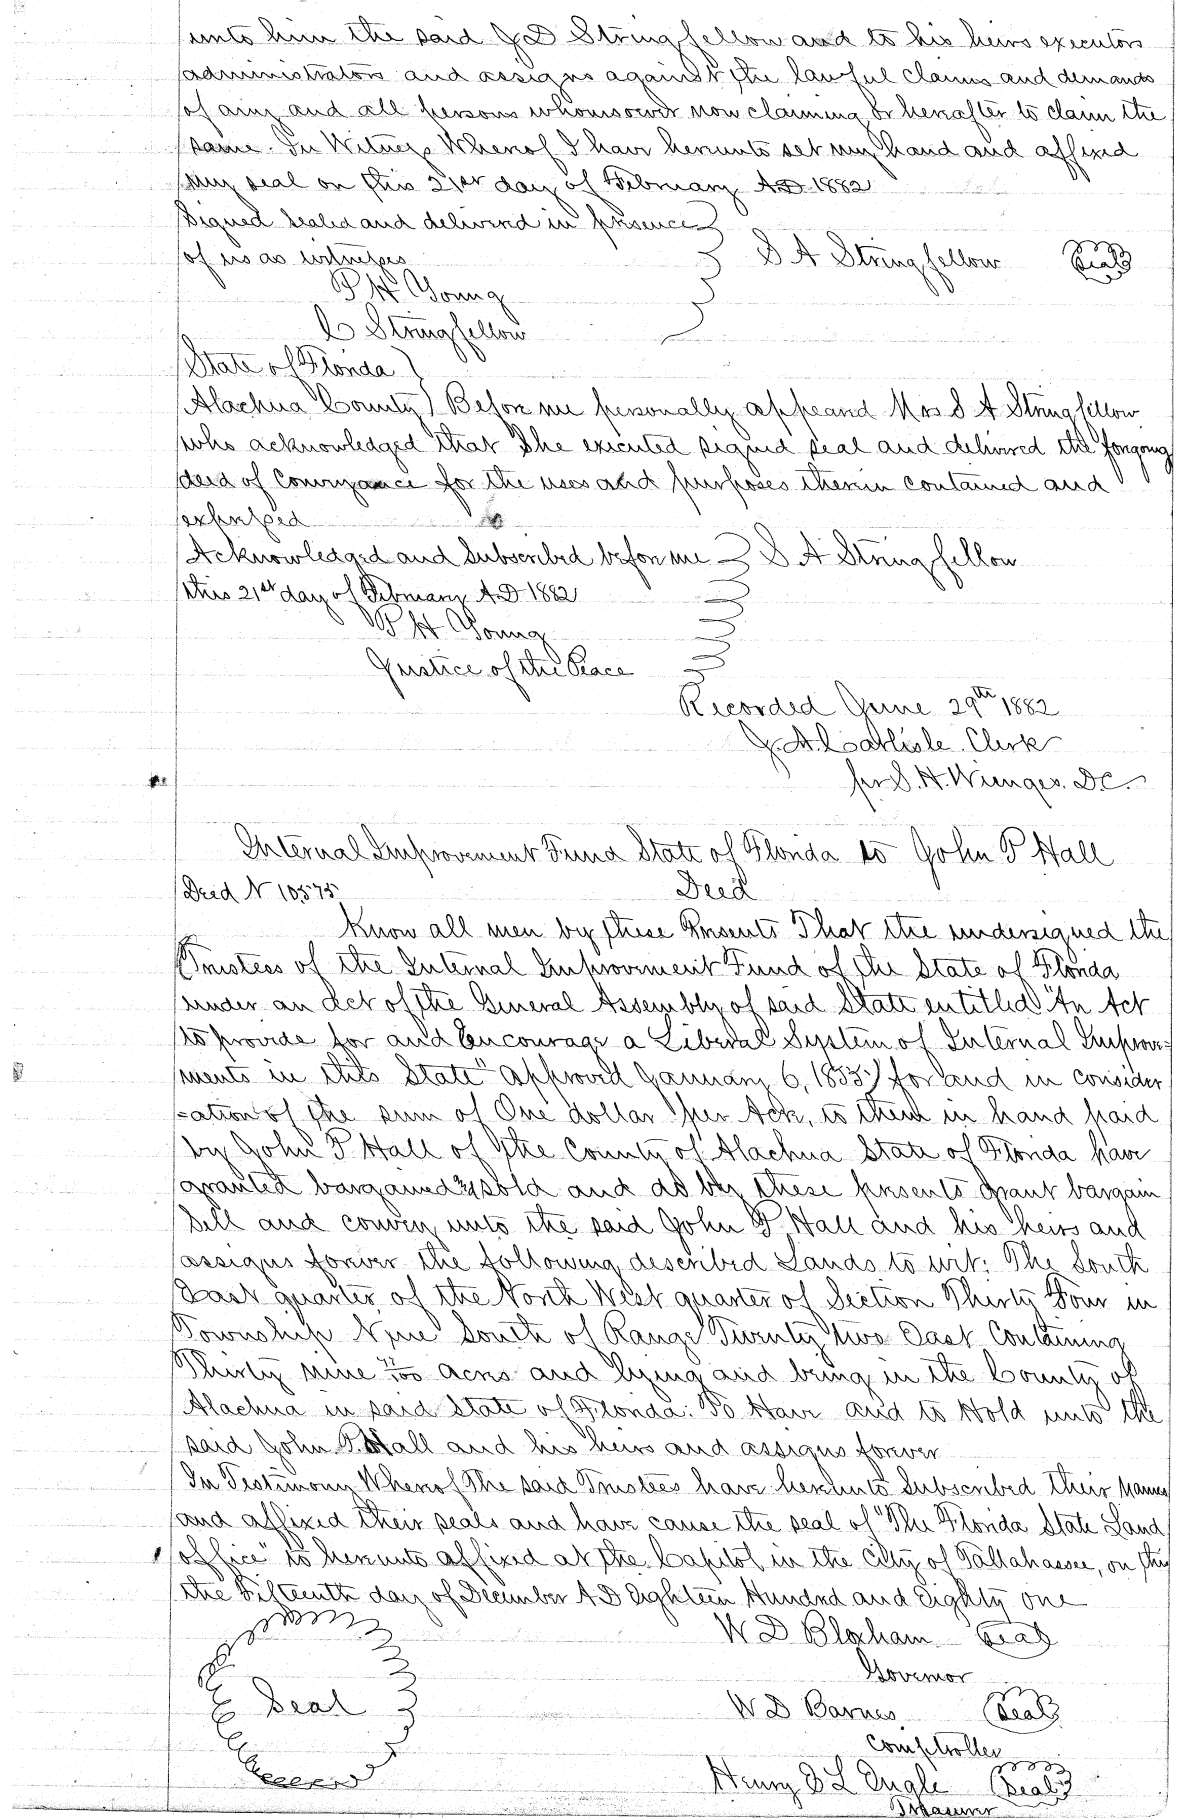 unto him the said J D Stringfellow and to his heirs executors
administrators and assigns against the lawful claims and demands
of any and all persons whomsoever now claiming or hereafter to claim the
same. In Witness Whereof I have hereunto set my hand and affixed
my seal on this 21st day of February A.D. 1882
Signed sealed and delivered in presence
of us as witnesses S A Stringfellow Seal
P H Young
C Stringfellow
State of Florida
Alachua County Before me personally appeared Mrs S A Stringfellow
who acknowledged that She executed signed seal and delivered the foregoing
deed of Conveyance for the uses and purposes therein contained and
expressed
Acknowledged and Subscribed before me S A Stringfellow
this 21st day of February A.D. 1882
P H Young
Justice of the Peace
Recorded June 29th 1882
J. A. Carlisle. Clerk
per S. H. Wienges. D.C.
Internal Improvement Fund State of Florida to John P Hall
Deed N 10575 Deed
Know all men by these Presents That the undersigned the
Trustees of the Internal Improvement Fund of the State of Florida
under an Act of the General Assembly of said State entitled "An Act
to provide for and Encourage a Liberal System of Internal Improve-
ments in this State" approved January 6, 1855) for and in consider
-ation of the sum of One dollar per Acre, to them in hand paid
by John P Hall of the County of Alachua State of Florida have
granted bargained & sold and do by these presents grant bargain
Sell and convey unto the said John P Hall and his heirs and
assigns forever the following described Lands to wit: The South
East quarter of the North West quarter of Section Thirty Four in
Township Nine South of Range Twenty two East Containing
Thirty nine /100 acres and lying and being in the County of
Alachua in said State of Florida. To Have and to Hold unto the
said John P. Hall and his heirs and assigns forever
In Testimony Whereof The said Trustees have hereunto Subscribed their Names
and affixed their seals and have cause the seal of "The Florida State Land
office" to hereunto affixed at the Capitol in the City of Tallahassee, on this
the Fifteenth day of December A D Eighteen Hundred and Eighty one
W D Bloxham Seal
Governor
Seal W D Barnes Seal
Comptroller
Henry A L Engle Seal
Treasurer